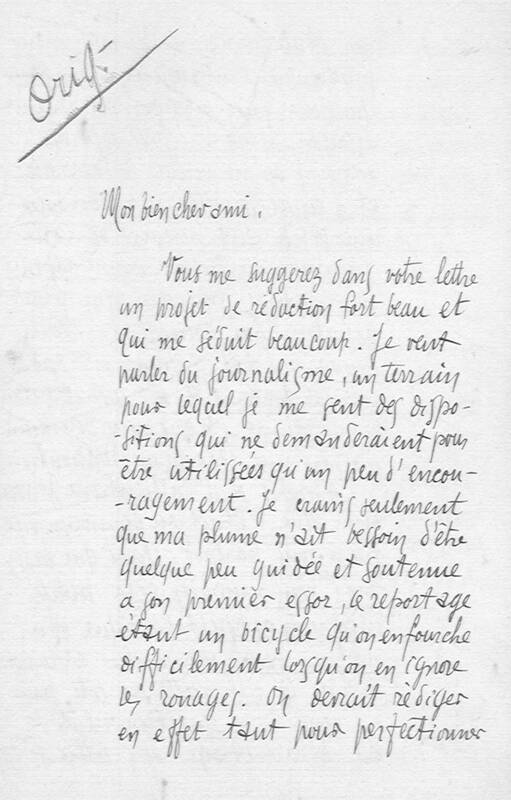 Orig:
Mon bien cher ami.
Vous me suggerez dans votre lettre
un projet de rédaction fort beau et
qui me séduit beaucoup. Je veut
parler du journalisme, un terrain
pour lequel je me sent des dispo-
-sitions qui ne demanderaient pour
être utilissées qu'un peu d'encou-
-ragement. Je crains seulement
que ma plume n'ait bessoin d'être
quelque peu guidée et soutenue
a son premier essor, le reportage
étant un bicycle qu'on enfourche
difficilement lorsqu'on en ignore
les rouages. On devrait rédiger
en effet tant pour perfectionner